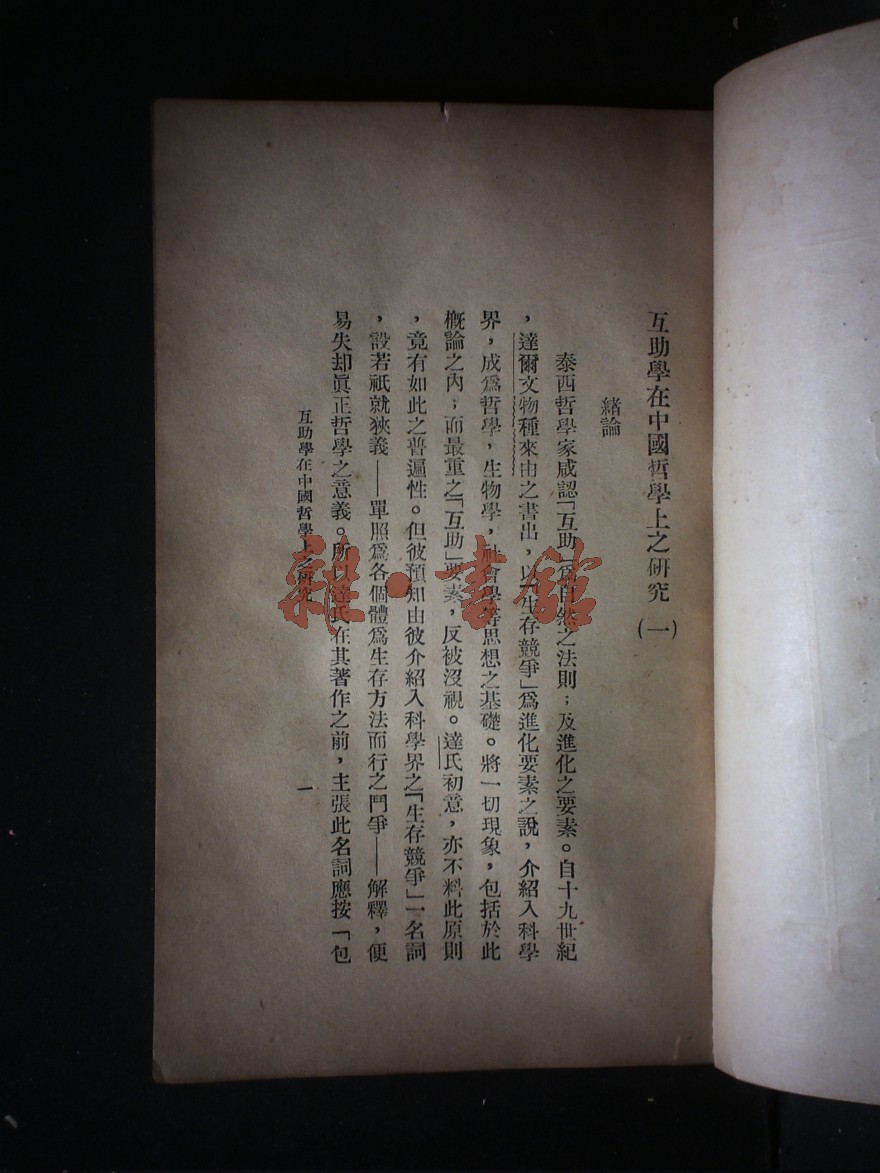 互助學在中國哲學上之研究(一)
緒論
泰西哲學家咸認「互助」爲自然之法則；及進化之要素。自十九世紀
，達爾文物種來由之書出，以「生存競爭」爲進化要素之說，介紹入科學
界，成爲哲學，生物學，社會學等思想之基礎。將一切現象，包括於此
概論之內；而最重之「互助」要素，反被沒視。達氏初意，亦不料此原則
，竟有如此之普遍性。但彼預知由彼介紹入科學界之「生存競爭」一名詞
，設若祇就狹義——單照爲各個體爲生存方法而行之鬥爭——解釋，便
易失却眞正哲學之意義。所以達氏在其著作之前，主張此名詞應按「包
互助學在中國哲學上之研究
一
雜·書館